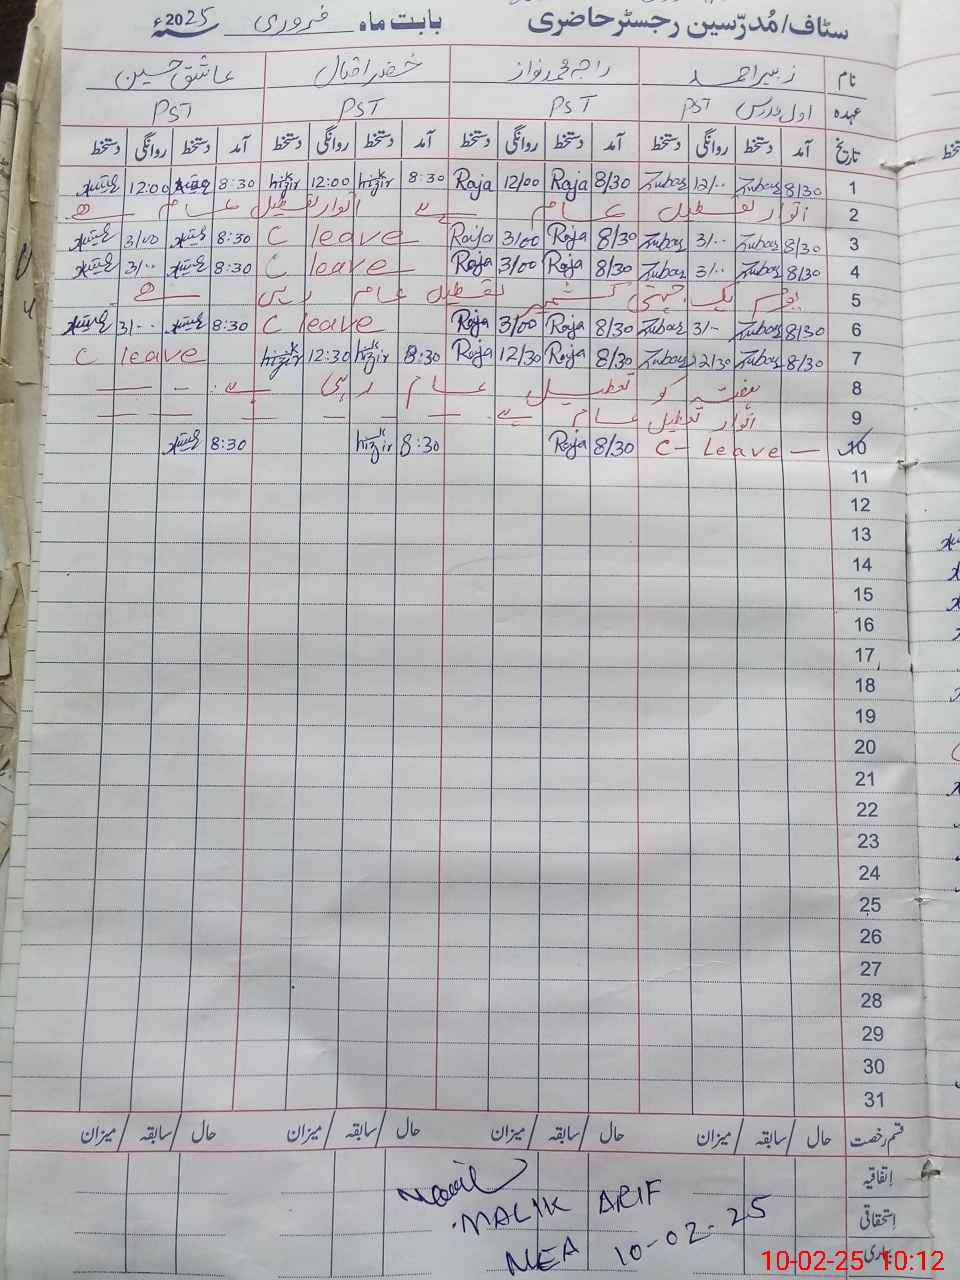 سٹاف/مُدرّسین رجسٹر حاضری بابت ماہ فروری سنہ 2025ء
نام زبیر احمد راجہ محمد نواز خضر اقبال عاشق حسین
عہدہ اول مدرس PST PST PST PST
تاریخ آمد دستخط روانگی دستخط آمد دستخط روانگی دستخط آمد دستخط روانگی دستخط آمد دستخط روانگی دستخط
1 8/30 Zubar 12/.. Zubar 8/30 Raja 12/00 Raja 8:30 khizir 12:00 khizir 8:30 12:00
2 اتوار تعطیل عام ہے اتوار تعطیل عام ہے
3 8/30 Zubar 3/.. Zubar 8/30 Raja 3/00 Raja C leave 8:30 3/00
4 8/30 Zubar 3/.. Zubar 8/30 Raja 3/00 Raja C leave 8:30 3/..
5 یوم یک جہتی کشمیر تعطیل عام رہی ہے
6 8/30 Zubar 3/- Zubar 8/30 Raja 3/00 Raja C leave 8:30 3/..
7 8/30 Zubar 12/30 Zubar 8/30 Raja 12/30 Raja 8:30 khizir 12:30 khizir C leave
8 ہفتہ کو تعطیل عام رہی ہے
9 اتوار تعطیل عام ہے
10 C- Leave — 8/30 Raja 8:30 khizir 8:30
11
12
13
14
15
16
17
18
19
20
21
22
23
24
25
26
27
28
29
30
31
قسم رخصت حال / سابقہ / میزان حال / سابقہ / میزان حال / سابقہ / میزان حال / سابقہ / میزان
اتفاقیہ
استحقاقی
بیماری
MALIK ARIF
MEA 10-02-25
10-02-25 10:12